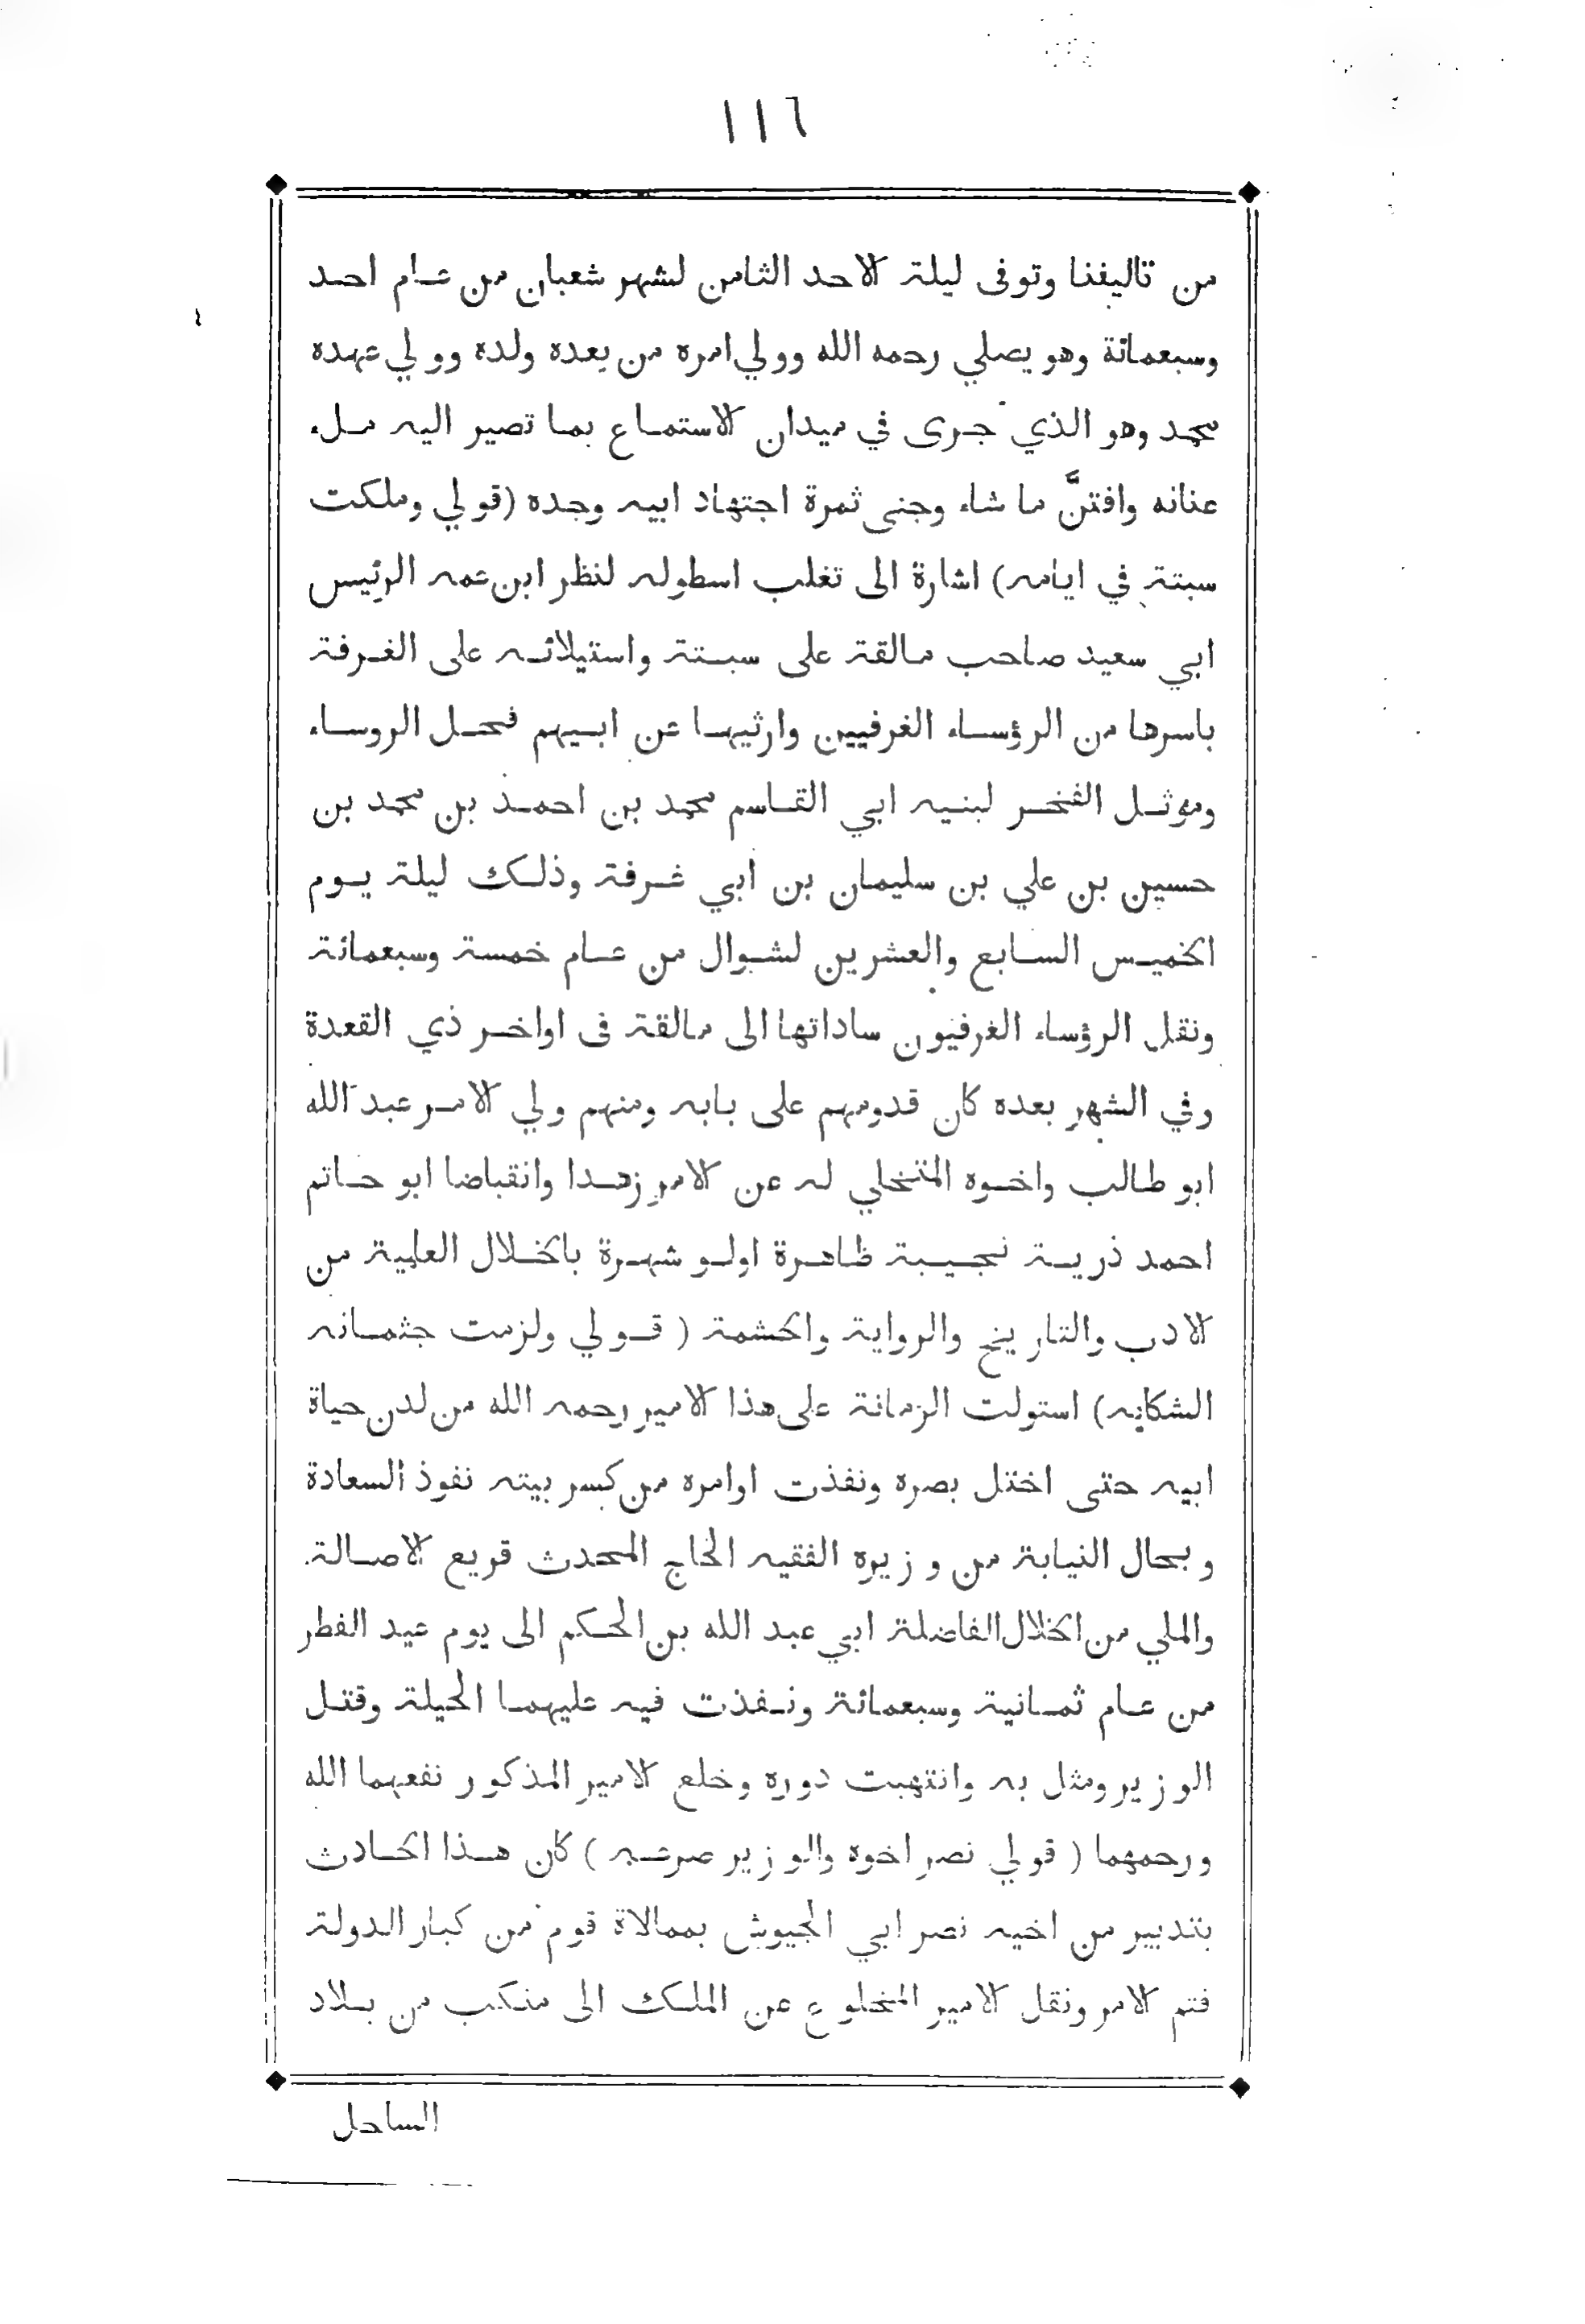 ١١٦
من تاليفنا وتوفى ليلة الاحد الثامن لشهر شعبان من عام احد
وسبعمائة وهو يصلي رحمه الله وولي امره من بعده ولده وولي عهده
محمد وهو الذي جرى في ميدان الاستماع بما تصير اليه ملء
عنانه وافتنَّ ما شاء وجنى ثمرة اجتهاد ابيه وجده (قولي وملكت
سبتة في ايامه) اشارة الى تغلب اسطوله لنظر ابن عمه الرئيس
ابي سعيد صاحب مالقة على سبتة واستيلائه على الغرفة
باسرها من الرؤساء الغرفيين وارثيها عن ابيهم فحل الروساء
وموثل الفخر لبنيه ابي القاسم محمد بن احمد بن محمد بن
حسين بن علي بن سليمان بن ابي غرفة وذلك ليلة يوم
الخميس السابع والعشرين لشوال من عام خمسة وسبعمائة
ونقل الرؤساء الغرفيون ساداتها الى مالقة فى اواخر ذي القعدة
وفي الشهر بعده كان قدومهم على بابه ومنهم ولي الامر عبد الله
ابو طالب واخوه المتخلي له عن الامر زهدا وانقباضا ابو حاتم
احمد ذرية نجيبة ظاهرة اولو شهرة بالخلال العلية من
الادب والتاريخ والرواية والحشمة ( قولي ولزمت جثمانه
الشكايه) استولت الزمانة على هذا الامير رحمه الله من لدن حياة
ابيه حتى اختل بصره ونفذت اوامره من كسر بيته نفوذ السعادة
وبحال النيابة من وزيره الفقيه الحاج المحدث قريع الاصالة
والملي من الخلال الفاضلة ابي عبد الله بن الحكم الى يوم عيد الفطر
من عام ثمانية وسبعمائة ونفذت فيه عليهما الحيلة وقتل
الوزير ومثل به وانتهبت دوره وخلع الامير المذكور نفعهما الله
ورحمهما ( قولي نصر اخوه والوزير صرعه ) كان هذا الحادث
بتدبير من اخيه نصر ابي الجيوش بممالاة قوم من كبار الدولة
فتم الامر ونقل الامير المخلوع عن الملك الى منكب من بلاد
الساحل